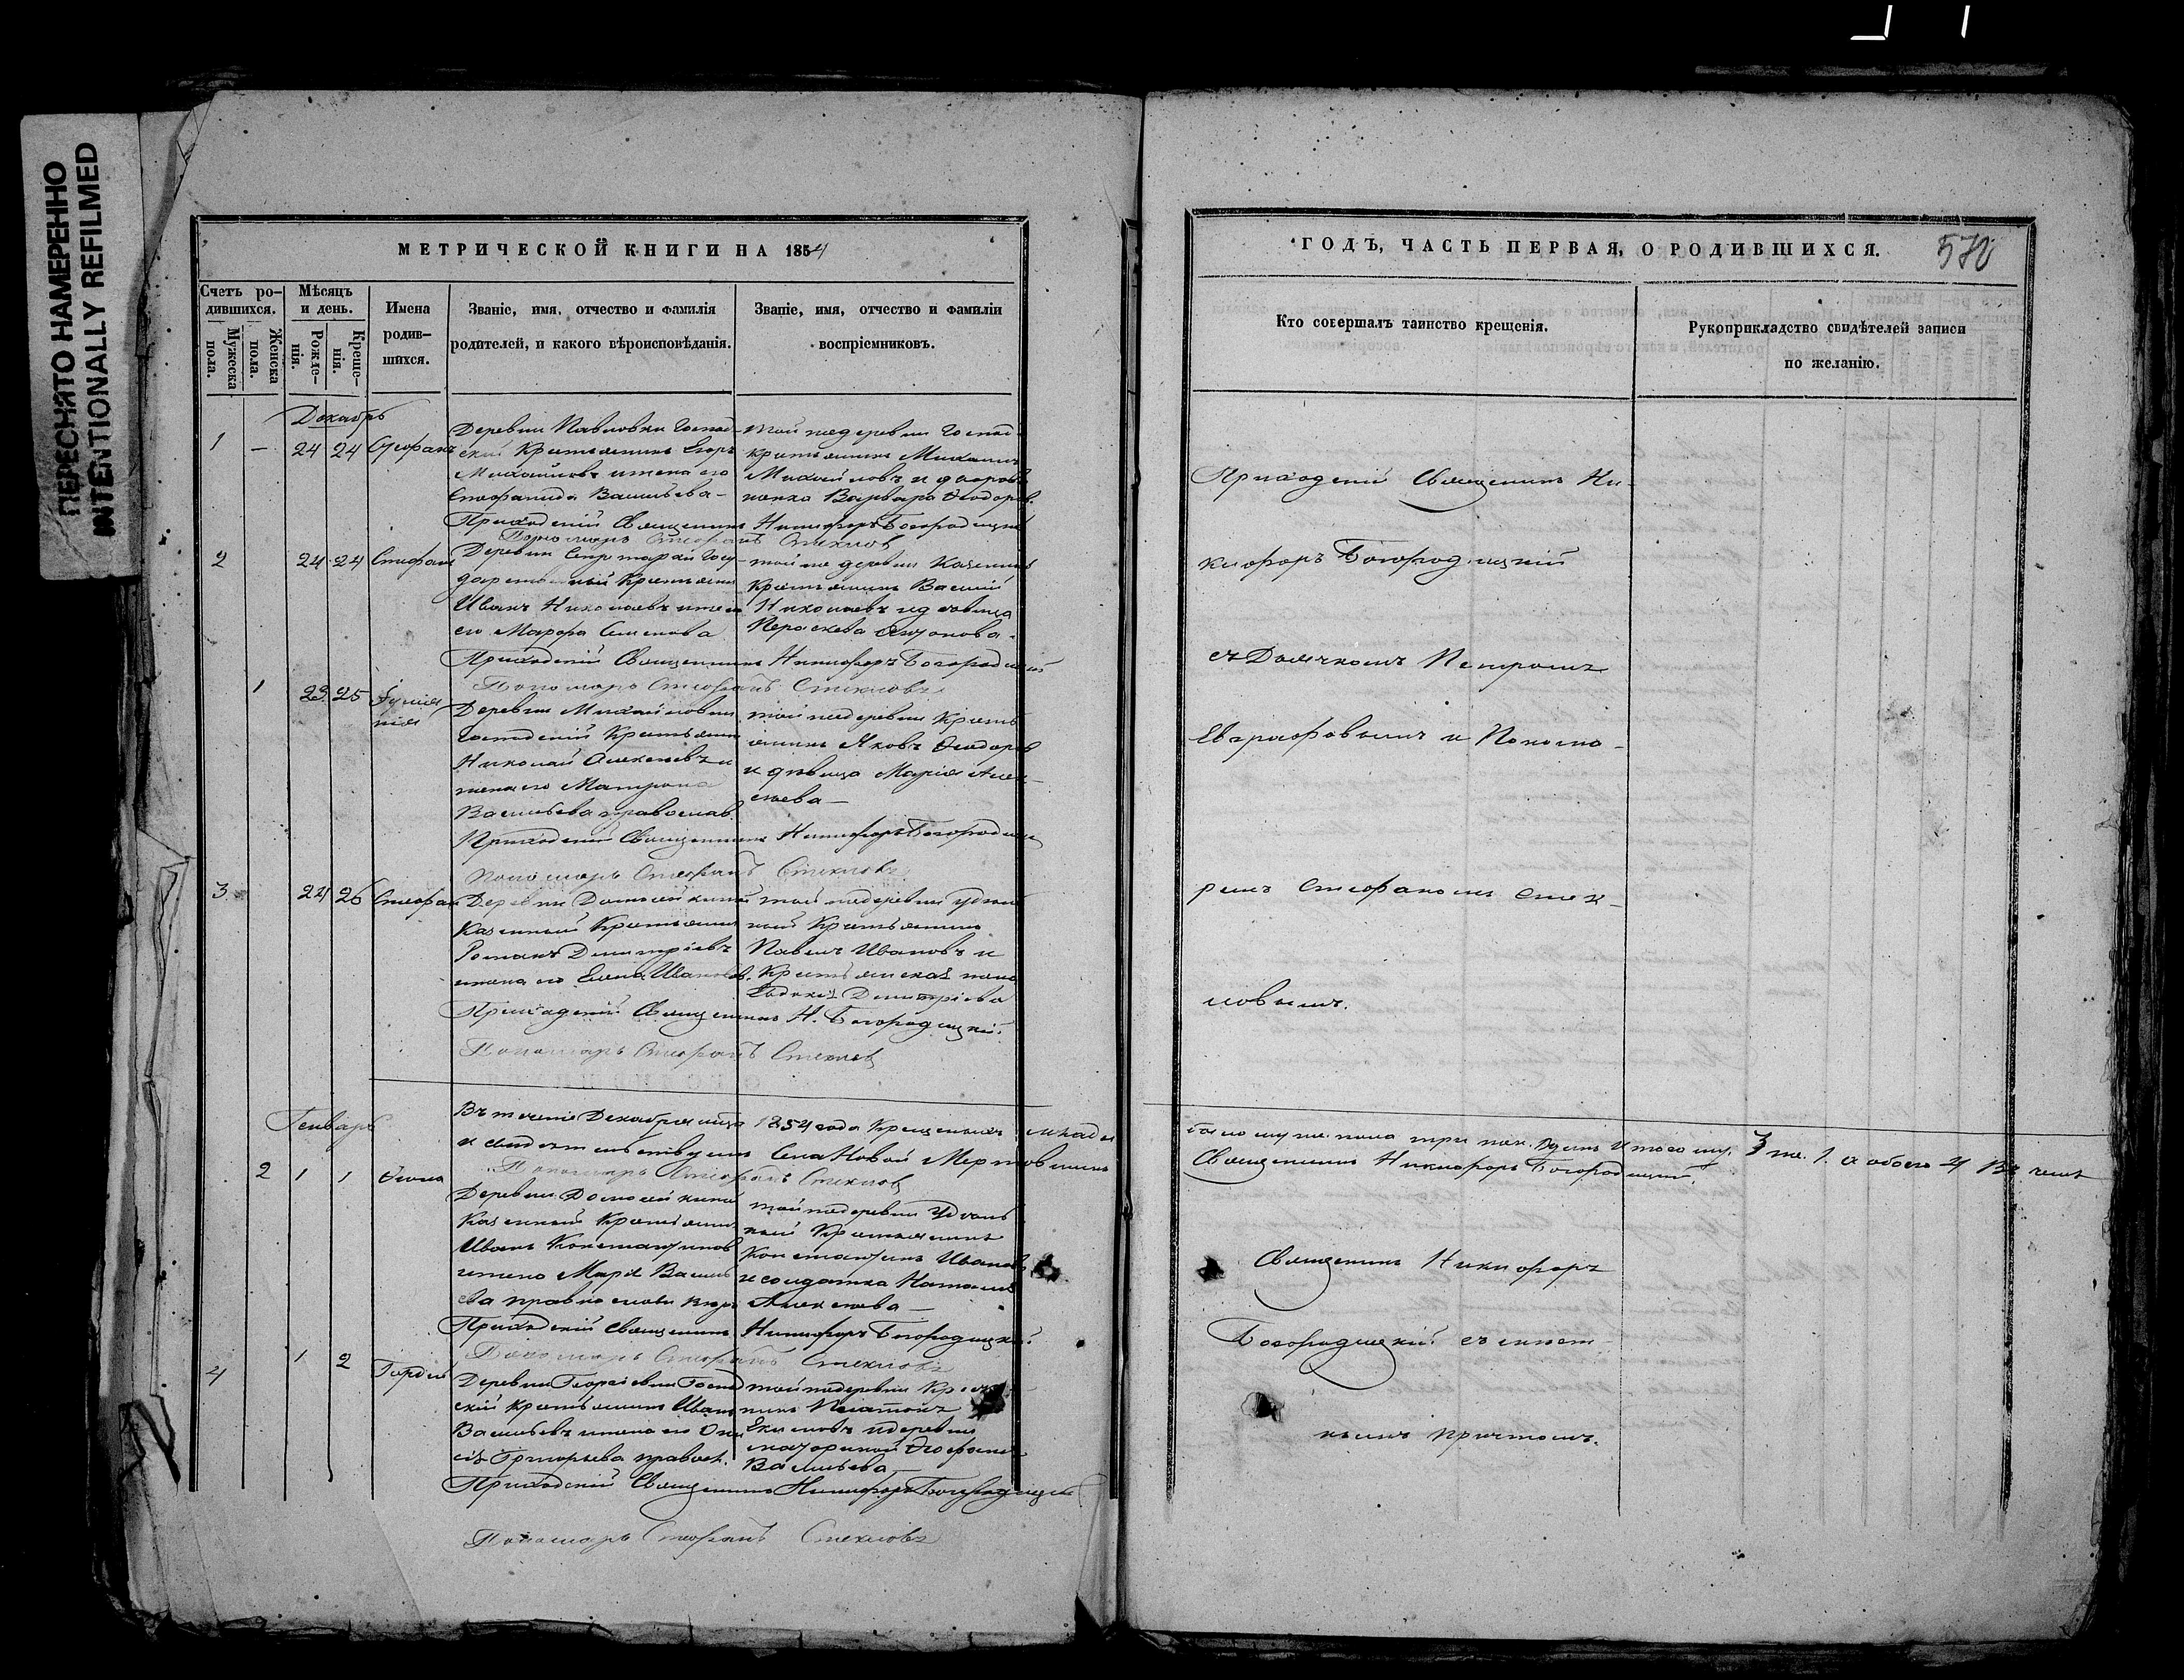 ПЕРЕСНЯТО НАМЕРЕННО
INTENTIONALLY REFILMED
МЕТРИЧЕСКОЙ КНИГИ НА 1854
Счетъ ро-
дившихся.
Мужеска пола.
Женска пола.
Мѣсяцъ и день.
Рожде-
нія.
Креще-
нія.
Имена
родив-
шихся.
Званіе, имя, отчество и фамилія
родителей, и какого вѣроисповѣданія.
Званіе, имя, отчество и фамиліи
воспріемниковъ.
Декабрь
1 — 24 24 Стефанъ
Деревни Павловки Господ-
скій Крестьянинъ Егоръ
Михайловъ и жена его
Стефанида Васильева
той же деревни Господ.
крестьянинъ Михаилъ
Михайловъ и дворов.
женка Варвара Ѳеодоров.
Приходскій Священникъ Никифоръ Богородицкій
Пономарь Стефанъ Стеклов
2 24 24 Стефанъ
Деревни Госу-
дарственный Крестьянин
Иванъ Николаевъ и жена
его Марфа Семенова
той же деревни Казенный
Крестьянинъ Василій
Николаевъ и девица
Параскева
Приходскій Священникъ Никифоръ Богородицкій
Пономарь Стефанъ Стекловъ
1 23 25
Деревни Михайловки
господскій Крестьянин
Николай Алексеевъ и
жена его Матрона
Васильева православ.
той же деревни Кресть
янинъ Яковъ Ѳеодоров
и дѣвица Марія Алек-
сеева —
Приходскій Священникъ Никифоръ Богородицкій
Пономарь Стефанъ Стекловъ
3 24 26 Стефан
Деревни
Казенный Крестьянин
Романъ Димитріевъ
жена его Елена Иванова.
той же деревни удель
ный Крестьянинъ
Павелъ Ивановъ и
Крестьянская жена
Евдокія Димитріева
Приходскій Священникъ Н. Богородицкій.
Пономарь Стефанъ Стеклов
Въ теченіе Декабря мца 1854 года Крещенныхъ
и свидѣтельствуемъ Села Новой
Пономарь Стефанъ Стеклов
Генварь
2 1 1
Деревни
Казенный Крестьянин
Иванъ Константинов
и жена Марія Василь
ева православн
той же деревни Удель
ный Крестьянинъ
Константинъ Иванов
и солдатка Наталія
Алексеева —
Приходскій Священникъ Никифоръ Богородицкій
Пономарь Стефанъ Стекловъ
4 1 2 Гордій
Деревни Георгіевки Господ
скій Крестьянинъ Иван
Васильевъ и жена его
Григорьева правос.
той же деревни Крестья
нинъ Платонъ
и деревни
Васильева
Приходскій Священникъ Никифоръ Богородицкій
Пономарь Стефанъ Стекловъ
ГОДЪ, ЧАСТЬ ПЕРВАЯ, О РОДИВШИХСЯ.
570
Кто совершалъ таинство крещенія.
Рукоприкладство свидѣтелей записи
по желанію.
Приходскій Священникъ Ни-
кифоръ Богородицкій
съ Дьячкомъ Петромъ
Евграфовымъ и Понома-
ремъ Стефаномъ Стек-
ловымъ.
было муж. пола три жен. одинъ Итого му. 3 же. 1. а обоего 4 Въ чемъ
Священникъ Никифоръ Богородицкій.
Священникъ Никифоръ
Богородицкій съ
нымъ причтомъ.